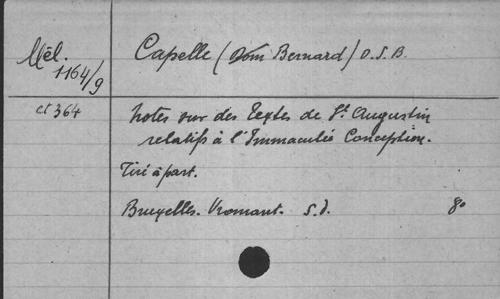 Mél. 1164/9
Capelle (Dom Bernard) O.S.B.
ct 364
Notes sur des Textes de St Augustin
relatifs à l'Immaculée Conception.
Tiré à part.
Bruxelles. Vromant. S.d. 8°